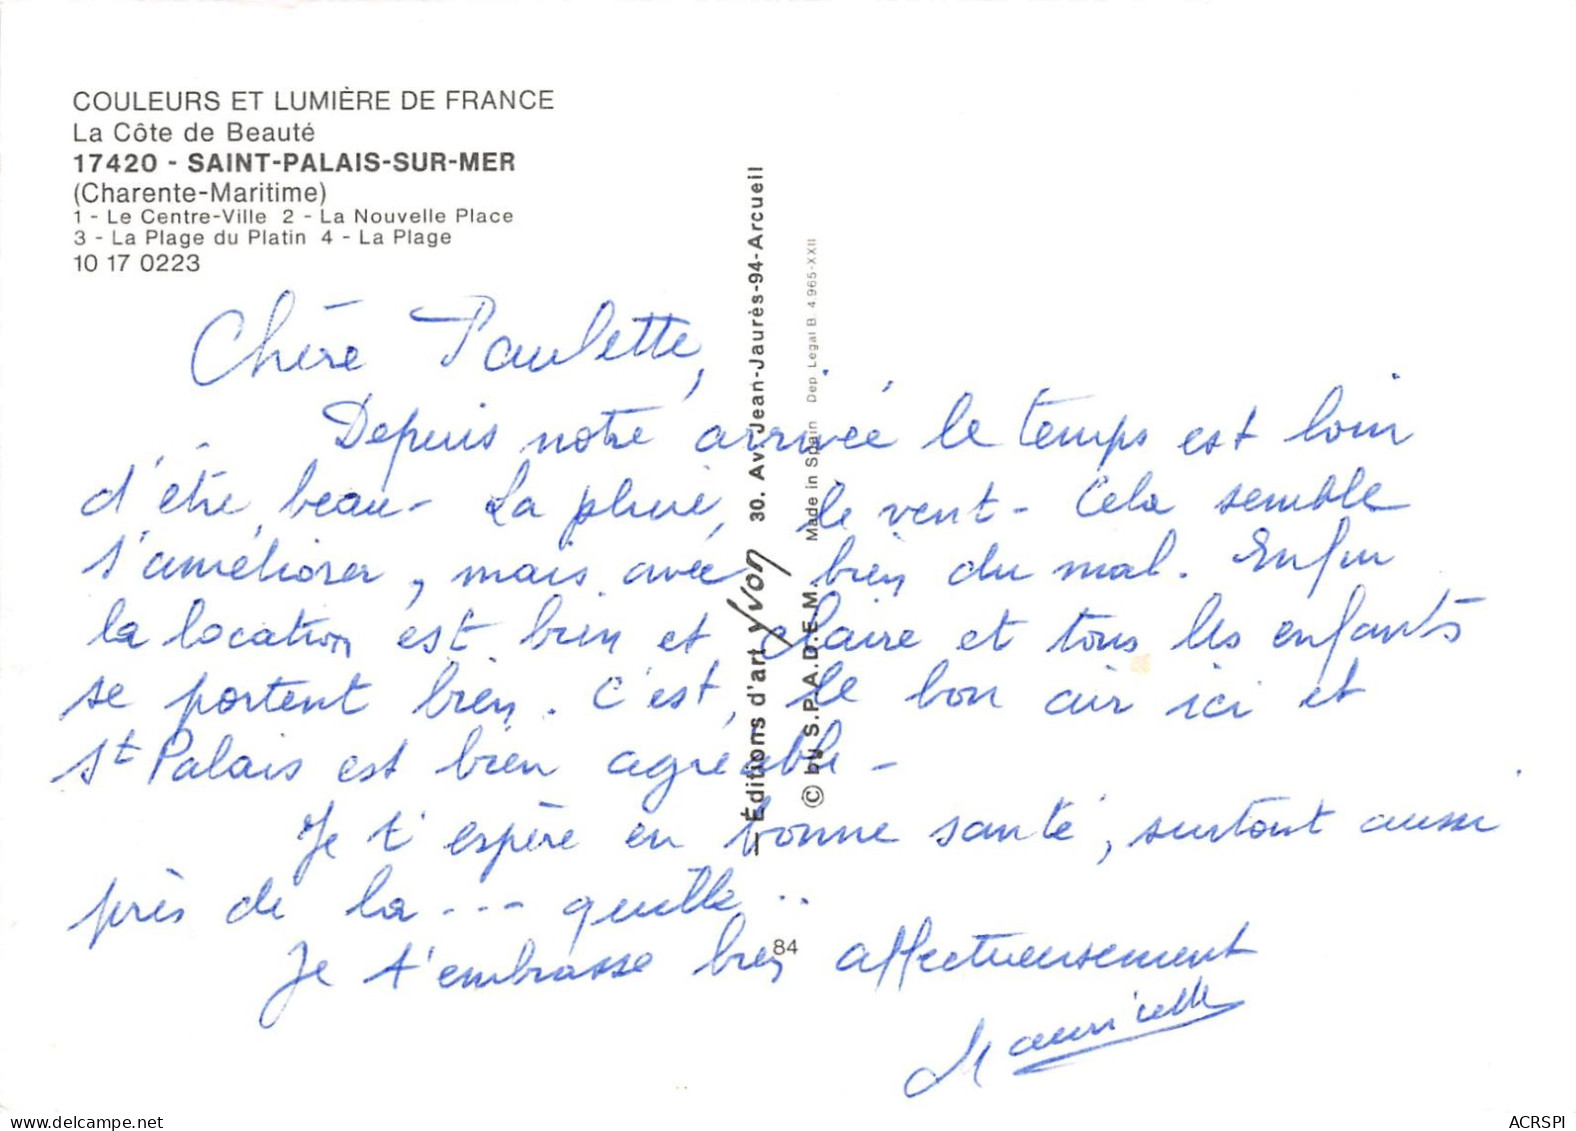 COULEURS ET LUMIÈRE DE FRANCE
La Côte de Beauté
17420 - SAINT-PALAIS-SUR-MER
(Charente-Maritime)
1 - Le Centre-Ville 2 - La Nouvelle Place
3 - La Plage du Platin 4 - La Plage
10 17 0223
Chère Paulette,
Depuis notre arrivée le temps est loin
d'être beau - La pluie, le vent - Cela semble
s'améliorer, mais avec bien du mal. Enfin
la location est bien et claire et tous les enfants
se portent bien. C'est, le bon air ici et
St Palais est bien agréable -
Je t'espère en bonne santé, surtout aussi
près de la --- quille ..
Je t'embrasse bien affectueusement
Mauricette
— Éditions d'art yvon 30. Av. Jean-Jaurès-94-Arcueil
© by S.P.A.D.E.M. Made in Spain Dep Legal B. 4.965-XXII
84
ACRSPI